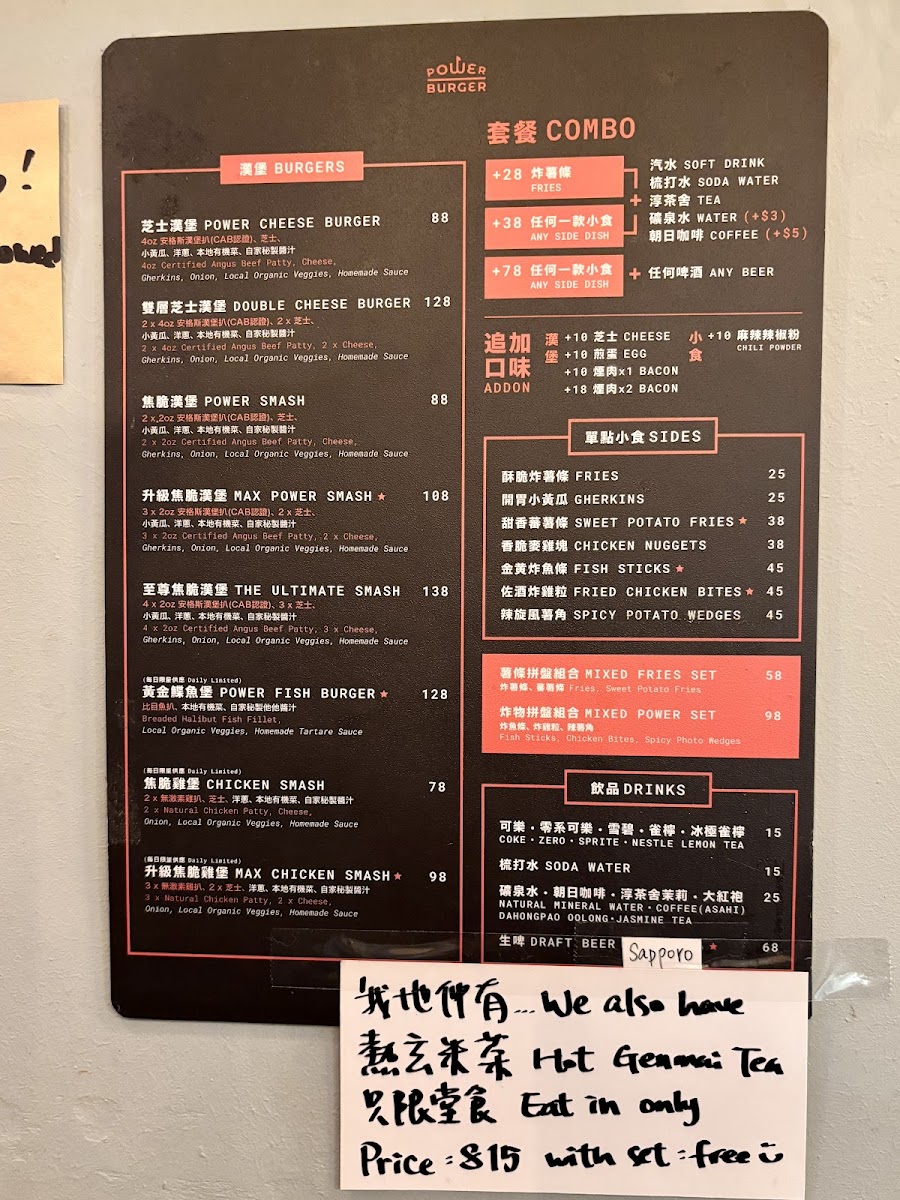 POWER
BURGER
漢堡 BURGERS
芝士漢堡 POWER CHEESE BURGER 88
4oz 安格斯漢堡扒(CAB認證)、芝士、
小黃瓜、洋蔥、本地有機菜、自家秘製醬汁
4oz Certified Angus Beef Patty, Cheese,
Gherkins, Onion, Local Organic Veggies, Homemade Sauce
雙層芝士漢堡 DOUBLE CHEESE BURGER 128
2 x 4oz 安格斯漢堡扒(CAB認證)、2 x 芝士、
小黃瓜、洋蔥、本地有機菜、自家秘製醬汁
2 x 4oz Certified Angus Beef Patty, 2 x Cheese,
Gherkins, Onion, Local Organic Veggies, Homemade Sauce
焦脆漢堡 POWER SMASH 88
2 x 2oz 安格斯漢堡扒(CAB認證)、芝士、
小黃瓜、洋蔥、本地有機菜、自家秘製醬汁
2 x 2oz Certified Angus Beef Patty, Cheese,
Gherkins, Onion, Local Organic Veggies, Homemade Sauce
升級焦脆漢堡 MAX POWER SMASH ★ 108
3 x 2oz 安格斯漢堡扒(CAB認證)、2 x 芝士、
小黃瓜、洋蔥、本地有機菜、自家秘製醬汁
3 x 2oz Certified Angus Beef Patty, 2 x Cheese,
Gherkins, Onion, Local Organic Veggies, Homemade Sauce
至尊焦脆漢堡 THE ULTIMATE SMASH 138
4 x 2oz 安格斯漢堡扒(CAB認證)、3 x 芝士、
小黃瓜、洋蔥、本地有機菜、自家秘製醬汁
4 x 2oz Certified Angus Beef Patty, 3 x Cheese,
Gherkins, Onion, Local Organic Veggies, Homemade Sauce
(每日限量供應 Daily Limited)
黃金鰈魚堡 POWER FISH BURGER ★ 128
比目魚扒、本地有機菜、自家秘製他他醬汁
Breaded Halibut Fish Fillet,
Local Organic Veggies, Homemade Tartare Sauce
(每日限量供應 Daily Limited)
焦脆雞堡 CHICKEN SMASH 78
2 x 無激素雞扒、芝士、洋蔥、本地有機菜、自家秘製醬汁
2 x Natural Chicken Patty, Cheese,
Onion, Local Organic Veggies, Homemade Sauce
(每日限量供應 Daily Limited)
升級焦脆雞堡 MAX CHICKEN SMASH ★ 98
3 x 無激素雞扒、2 x 芝士、洋蔥、本地有機菜、自家秘製醬汁
3 x Natural Chicken Patty, 2 x Cheese,
Onion, Local Organic Veggies, Homemade Sauce
套餐 COMBO
+28 炸薯條
FRIES
+38 任何一款小食
ANY SIDE DISH
+
汽水 SOFT DRINK
梳打水 SODA WATER
淳茶舍 TEA
礦泉水 WATER (+$3)
朝日咖啡 COFFEE (+$5)
+78 任何一款小食 + 任何啤酒 ANY BEER
ANY SIDE DISH
追加
口味
ADDON
漢堡
+10 芝士 CHEESE
+10 煎蛋 EGG
+10 煙肉x1 BACON
+18 煙肉x2 BACON
小食
+10 麻辣辣椒粉
CHILI POWDER
單點小食 SIDES
酥脆炸薯條 FRIES 25
開胃小黃瓜 GHERKINS 25
甜香蕃薯條 SWEET POTATO FRIES ★ 38
香脆麥雞塊 CHICKEN NUGGETS 38
金黃炸魚條 FISH STICKS ★ 45
佐酒炸雞粒 FRIED CHICKEN BITES ★ 45
辣旋風薯角 SPICY POTATO WEDGES 45
薯條拼盤組合 MIXED FRIES SET 58
炸薯條、蕃薯條 Fries, Sweet Potato Fries
炸物拼盤組合 MIXED POWER SET 98
炸魚條、炸雞粒、辣薯角
Fish Sticks, Chicken Bites, Spicy Photo Wedges
飲品 DRINKS
可樂・零系可樂・雪碧・雀檸・冰極雀檸 15
COKE・ZERO・SPRITE・NESTLE LEMON TEA
梳打水 SODA WATER 15
礦泉水・朝日咖啡・淳茶舍茉莉・大紅袍 25
NATURAL MINERAL WATER・COFFEE(ASAHI)
DAHONGPAO OOLONG・JASMINE TEA
生啤 DRAFT BEER Sapporo ★ 68
我地仲有... We also have
熱玄米茶 Hot Genmai Tea
只限堂食 Eat in only
Price : $15 with set : free